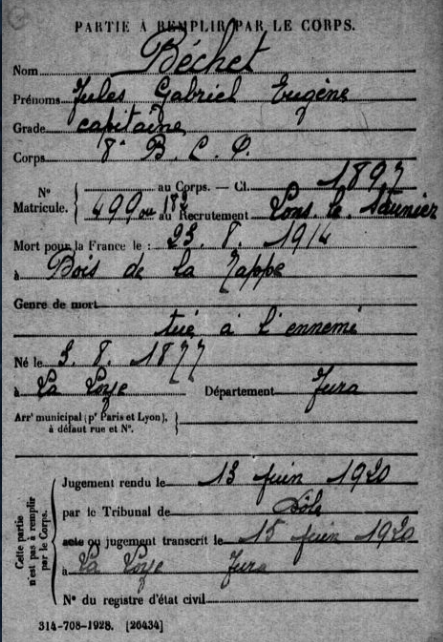 PARTIE À REMPLIR PAR LE CORPS.
Nom Béchet
Prénoms Jules Gabriel Eugène
Grade capitaine
Corps 8e B. C. P.
N° Matricule. { au Corps. — Cl. 1897
499 ou 184 au Recrutement Lons-le-Saunier
Mort pour la France le : 23. 8. 1914
à Bois de la Zappe
Genre de mort
tué à l'ennemi
Né le 3. 8. 1877
à La Loye Département Jura
Arrt municipal (pr Paris et Lyon), à défaut rue et N°. }
Cette partie n'est pas à remplir par le Corps.
Jugement rendu le 13 juin 1920
par le Tribunal de Dôle
acte ou jugement transcrit le 15 juin 1920
à La Loye Jura
N° du registre d'état civil
314-708-1928. [26434]